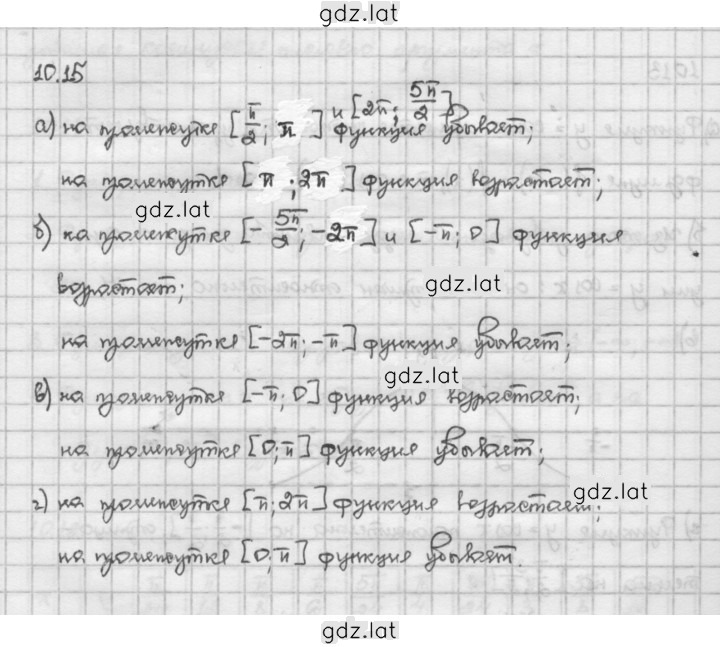 gdz.lat
10.15
а) на промежутке [π/2; π] и [2π; 5π/2] функция убывает;
на промежутке [π; 2π] функция возрастает;
gdz.lat
б) на промежутке [-5π/2; -2π] и [-π; 0] функция
возрастает;
gdz.lat
на промежутке [-2π; -π] функция убывает;
gdz.lat
в) на промежутке [-π; 0] функция возрастает;
на промежутке [0; π] функция убывает;
gdz.lat
г) на промежутке [π; 2π] функция возрастает;
на промежутке [0; π] функция убывает.
gdz.lat